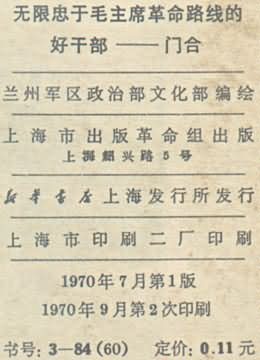 无限忠于毛主席革命路线的
好干部——门合
兰州军区政治部文化部编绘
上海市出版革命组出版
上海绍兴路5号
新华书店上海发行所发行
上海市印刷二厂印刷
1970年7月第1版
1970年9月第2次印刷
书号：3—84(60) 定价：0.11元